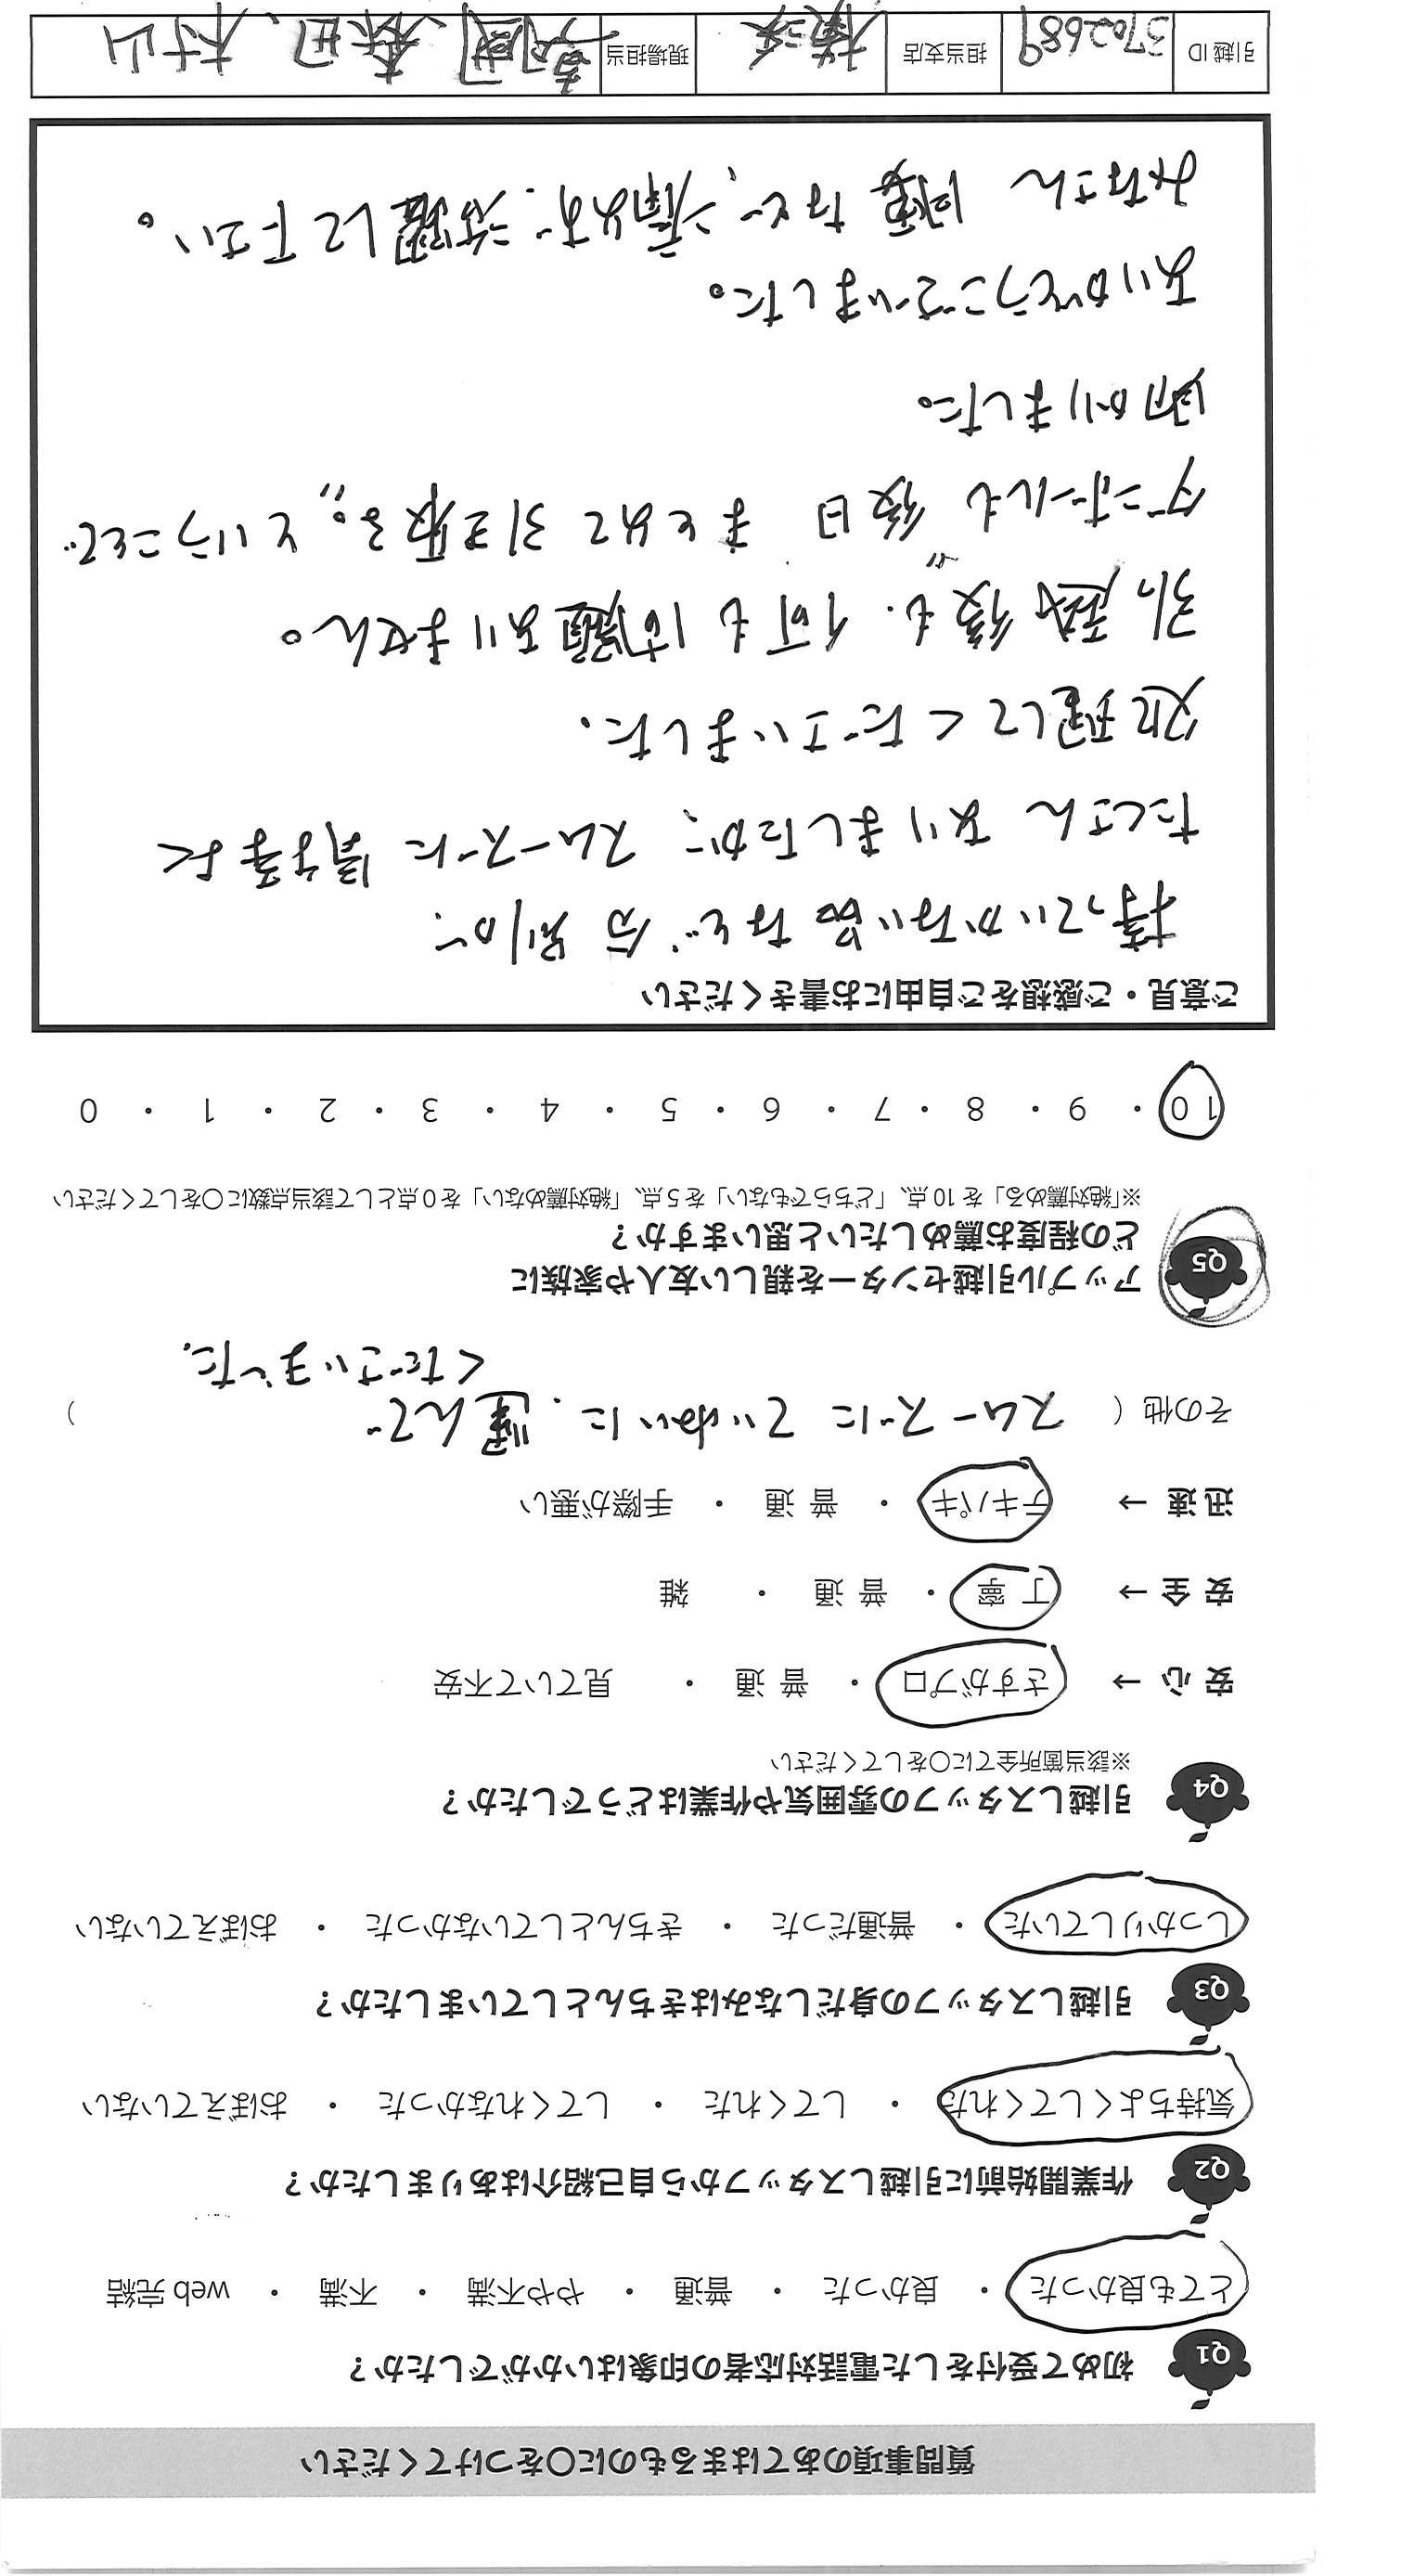 質問事項のあてはまるものに〇をつけてください
Q1 初めて受付をした電話対応者の印象はいかがでしたか？
とても良かった ・ 良かった ・ 普通 ・ やや不満 ・ 不満 ・ web 完結
Q2 作業開始前に引越しスタッフから自己紹介はありましたか？
気持ちよくしてくれた ・ してくれた ・ してくれなかった ・ おぼえていない
Q3 引越しスタッフの身だしなみはきちんとしていましたか？
しっかりしていた ・ 普通だった ・ きちんとしていなかった ・ おぼえていない
Q4 引越しスタッフの雰囲気や作業はどうでしたか？
※該当箇所全てに〇をしてください
安心 → さすがプロ ・ 普通 ・ 見ていて不安
安全 → 丁寧 ・ 普通 ・ 雑
迅速 → テキパキ ・ 普通 ・ 手際が悪い
その他 （ スムーズに ていねいに、運んで
くださいました。 ）
Q5 アップル引越センターを親しい友人や家族に
どの程度お薦めしたいと思いますか？
※「絶対薦める」を 10 点、「どちらでもない」を 5 点、「絶対薦めない」を 0 点として該当点数に〇をしてください
10 ・ 9 ・ 8 ・ 7 ・ 6 ・ 5 ・ 4 ・ 3 ・ 2 ・ 1 ・ 0
ご意見・ご感想をご自由にお書きください
持っていかない品など、分別が、
たくさん ありましたが、スムーズに 手よく
処理して くださいました。
引越後も、何も問題ありません。
ダンボールも "後日 まとめて 引き取る。" ということで
助かりました。
ありがとうございました。
みなさん など、痛めず、活躍して下さい。
引越 ID 3702689 担当支店 横浜 現場担当 森田、村山